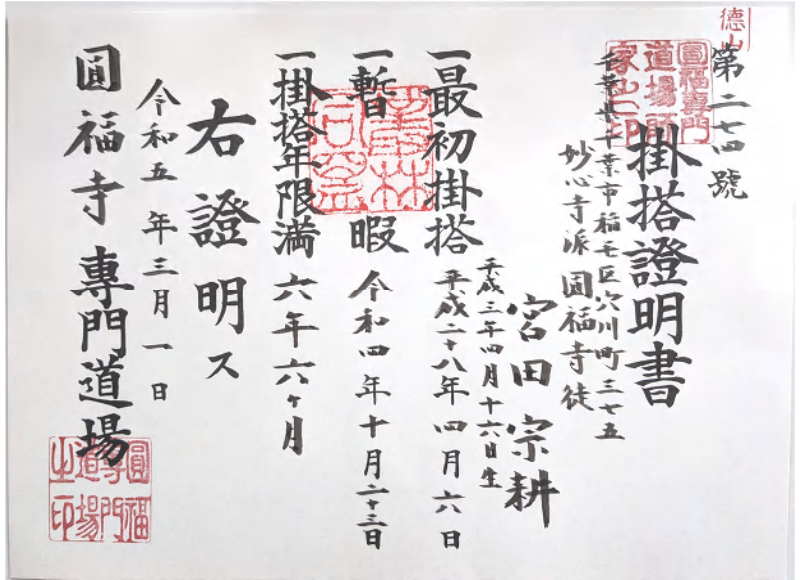 德山
第二七四號
掛搭證明書
千葉県千葉市稲毛区穴川町三七五
妙心寺派 圓福寺徒
宮田宗耕
平成三年四月十六日生
一最初掛搭 平成二十八年四月六日
一暫暇 令和四年十月二十三日
一掛搭年限満 六年六ヶ月
右證明ス
令和五年三月一日
圓福寺專門道場
圓福專門道場之印